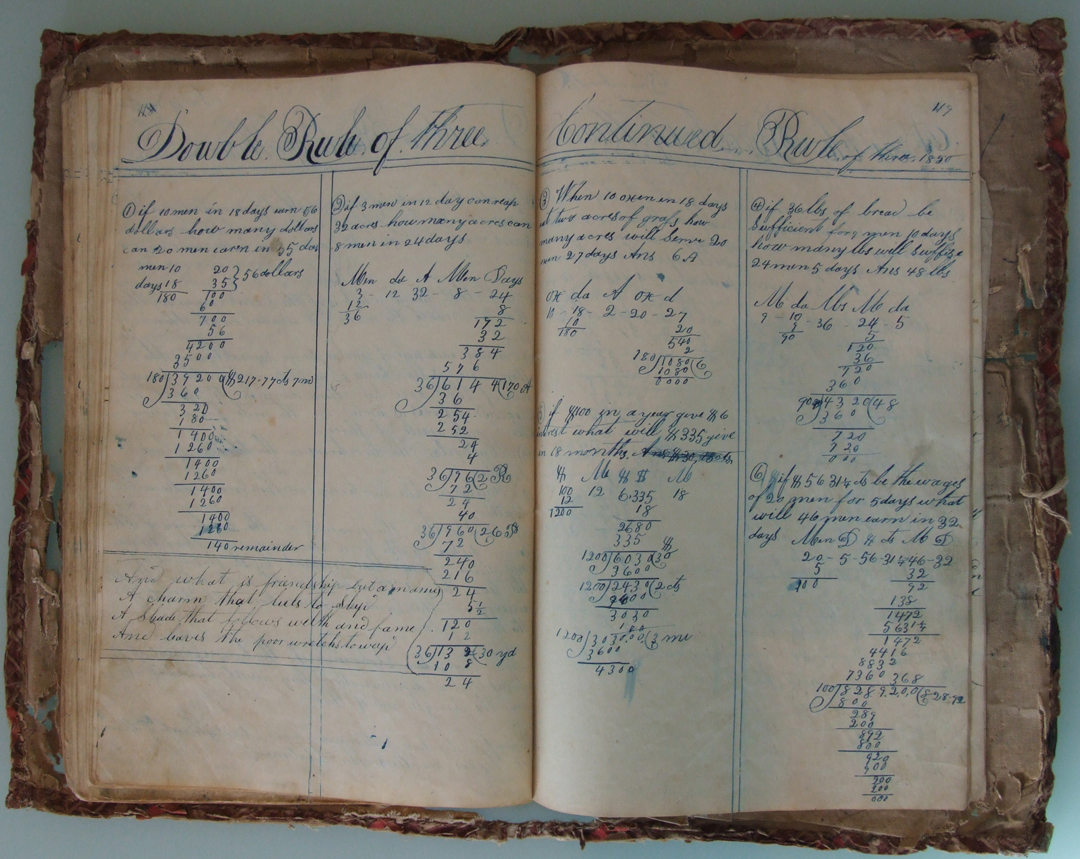 Double Rule of three
① if 10 men in 18 days earn 56
dollars how many dollars
can 20 men earn in 35 das
men 10 20
days 18 35 56 dollars
180 100
60
700
56
4200
3500
180 39200 $217-77cts 7m
360
320
180
1400
1260
1400
1260
1400
1260
1400
1260
140 remainder
And what is friendship but a name
A charm that luls to sleep
A Shade that follows welth and fame
And leaves the poor wretch to weep
② if 3 men in 12 day can reap
32 acres how many acres can
8 men in 24 days
Men da A Men Days
3 - 12 32 - 8 - 24
12 8
36 192
32
384
576
36 6144 170 A
36
254
252
24
4
36 96 2 R
72
24
40
36 960 26 P
72
240
216
24
5½
120
12
36 132 3 yd
108
24
Continued Rule of three 1850
119
③ When 10 oxen in 18 days
eat two acres of grass how
many acres will Serve 20
oxen 27 days Ans 6 A
ox da A ox d
10 - 18 - 2 - 20 - 27
10 20
180 540
2
180 1080 6
1080
0000
if $100 in a year give $6
interest what will $335 give
in 18 months.
$ M $ $ M
100 12 6 335 18
12 18
1200 2680
335
1200 6030
3600
1200 2430 2 cts
2400
3030
1200 3
3600
4300
④ if 36 lbs of bread be
Sufficient for 9 men 10 days
how many lbs will Suffise
24 men 5 days Ans 48 lbs
M da lbs M da
9 - 10 - 36 - 24 - 5
9 5
90 120
36
720
360
90 4320 48
360
720
720
000
⑥ if $56 31¼ cts be the wages
of 20 men for 5 days what
will 46 men earn in 32
days Men D $ cts M D
20 - 5 - 56-31¼ 46-32
5 32
100 92
138
1472
5631¼
1472
4416
8832
7360 368
100 8289200 828-92
800
289
200
892
800
920
900
200
200
000